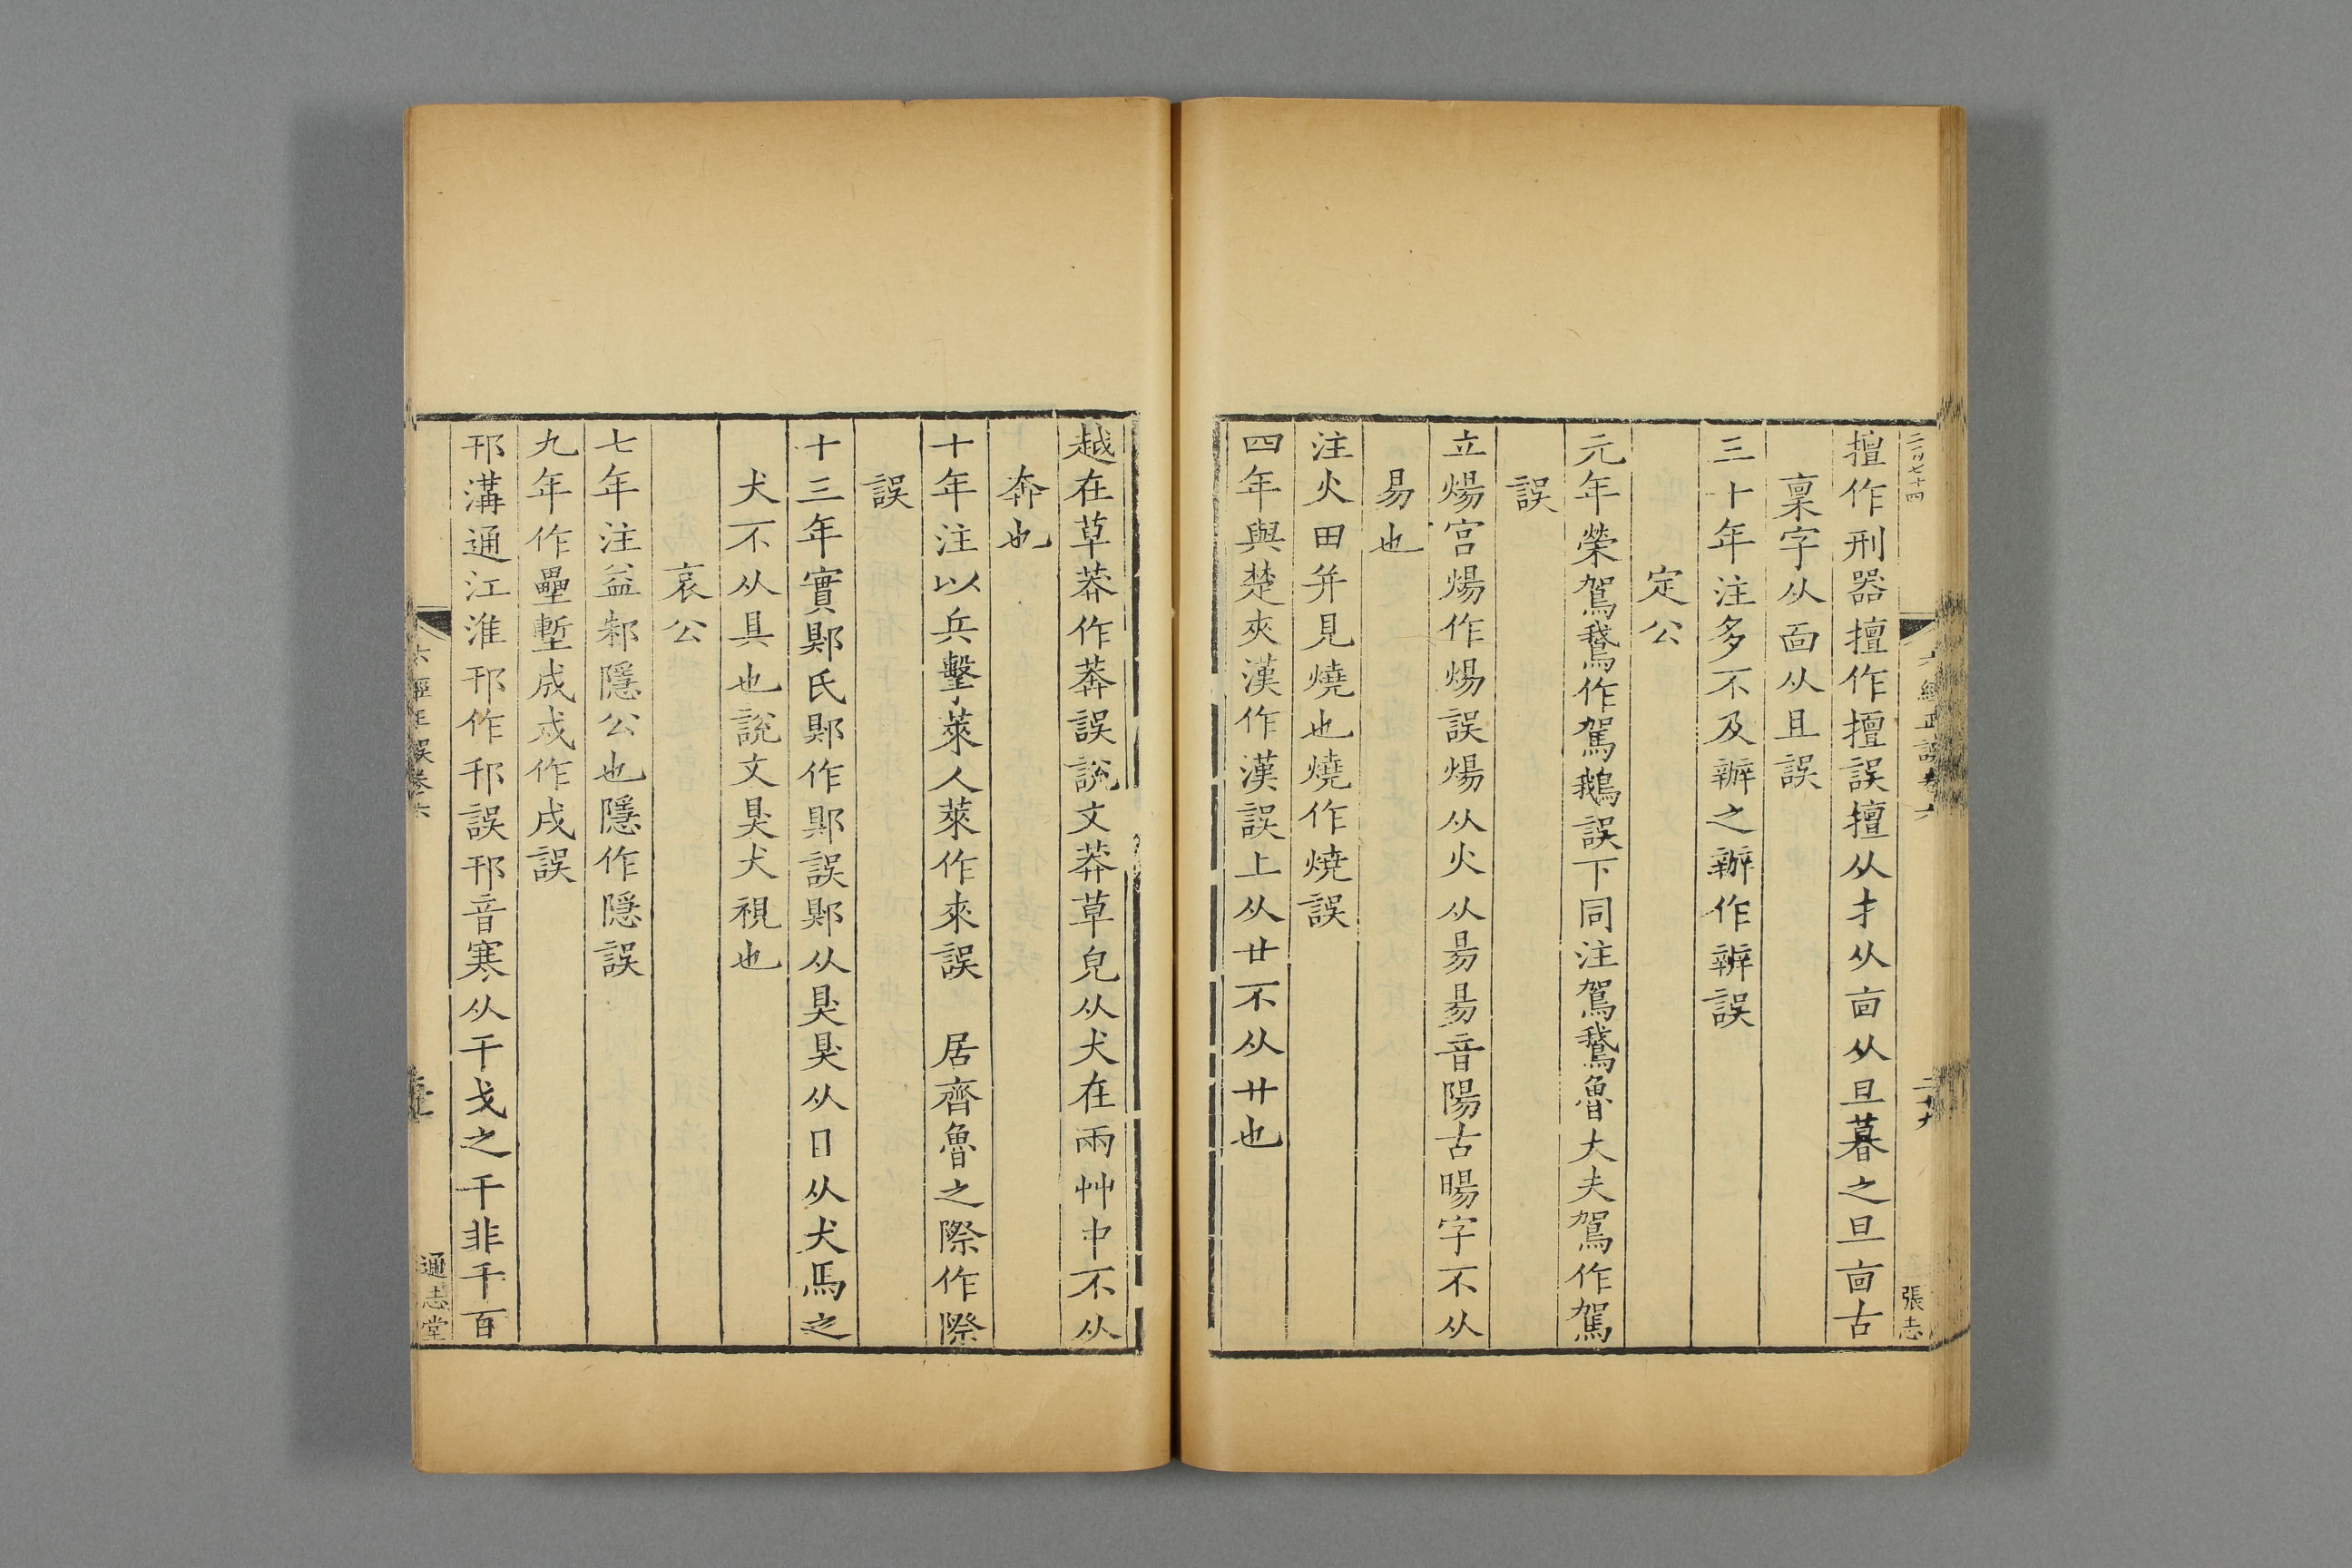 擅作刑器擅作擅誤擅从扌从亩从旦暮之旦亩古
稟字从面从且誤
三十年注多不及辦之辦作辨誤
定公
元年榮駕鵞作駕鵝誤下同注駕鵞魯大夫駕作駕
誤
立煬宮煬作煬誤煬从火从昜昜音陽古暘字不从
易也
注火田并見燒也燒作燒誤
四年與楚夾漢作漢誤上从廿不从廾也
越在草莽作莾誤說文莽草皃从犬在兩艸中不从
奔也
十年注以兵鑿萊人萊作來誤　居齊魯之際作際
誤
十三年實鄓氏鄓作鄓誤鄓从狊狊从日从犬馬之
犬不从具也說文狊犬視也
哀公
七年注益邾隱公也隱作隱誤
九年作壘塹成戍作戌誤
邗溝通江淮邗作邘誤邗音寒从干戈之干非千百
六經正誤卷六
通志堂
張志